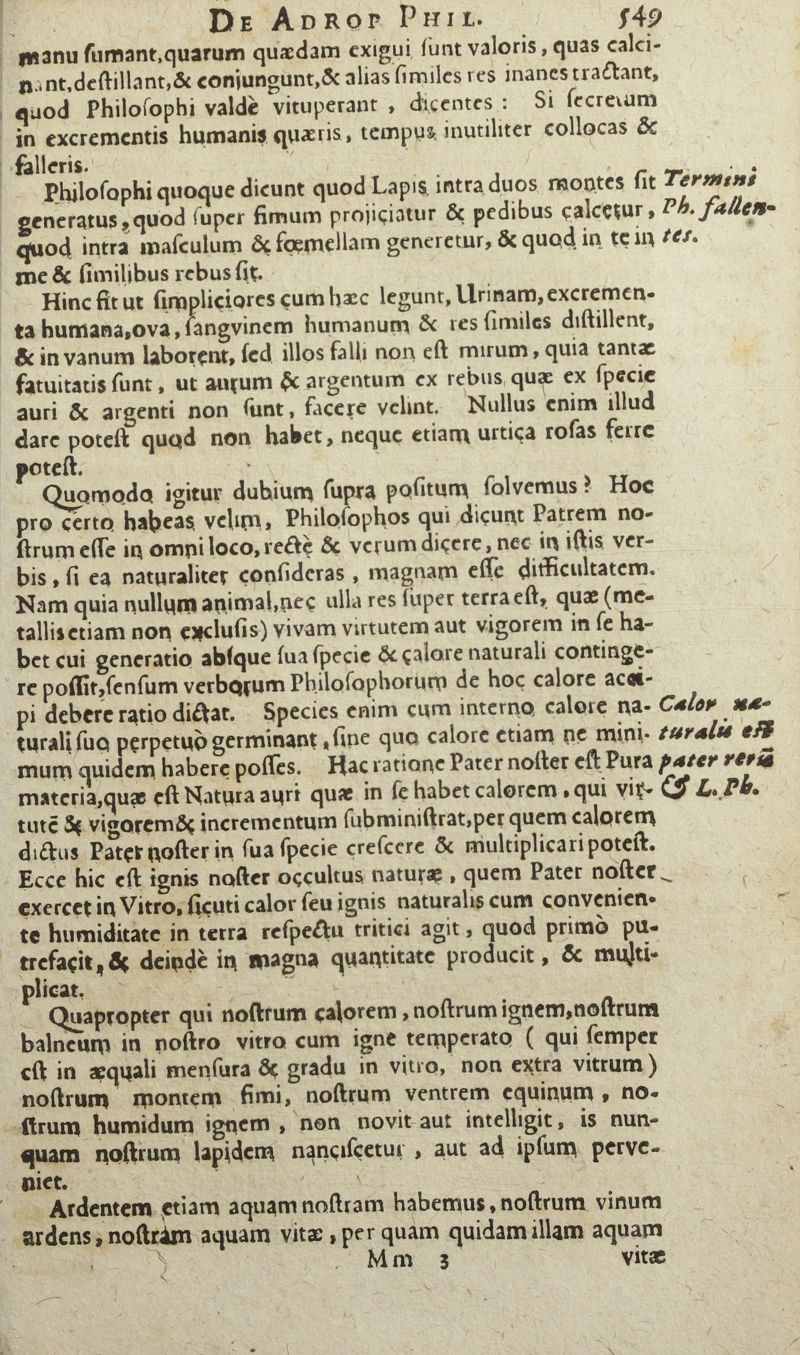 DE ADROP PHIL. 549
manu ſumant,quarum quædam exigui ſunt valoris, quas calci-
nant,deſtillant,& coniungunt,& alias ſimiles res inanes tractant,
quod Philoſophi valdè vituperant , dicentes : Si ſecretum
in excrementis humanis quæris, tempus inutiliter collocas &
falleris.
Philoſophi quoque dicunt quod Lapis intra duos montes ſit Termini
generatus, quod ſuper fimum projiciatur & pedibus calcetur, Ph. fallen-
quod intra maſculum & fœmellam generetur, & quod in te in tes.
me & ſimilibus rebus ſit.
Hinc fit ut ſimpliciores cum hæc legunt, Urinam, excremen-
ta humana,ova, ſangvinem humanum & res ſimiles diſtillent,
& in vanum laborent, ſed illos falli non eſt mirum, quia tantæ
fatuitatis ſunt, ut aurum & argentum ex rebus quæ ex ſpecie
auri & argenti non ſunt, facere velint. Nullus enim illud
dare poteſt quod non habet, neque etiam urtica roſas ferre
poteſt.
Quomodo igitur dubium ſupra poſitum ſolvemus? Hoc
pro certo habeas velim, Philoſophos qui dicunt Patrem no-
ſtrum eſſe in omni loco, rectè & verum dicere, nec in iſtis ver-
bis, ſi ea naturaliter conſideras , magnam eſſe difficultatem.
Nam quia nullum animal,nec ulla res ſuper terra eſt, quæ (me-
tallis etiam non excluſis) vivam virtutem aut vigorem in ſe ha-
bet cui generatio abſque ſua ſpecie & calore naturali continge-
re poſſit,ſenſum verborum Philoſophorum de hoc calore acci-
pi debere ratio dictat. Species enim cum interno calore na- Calor na-
turali ſuo perpetuò germinant, ſine quo calore etiam ne mini- turalis eſt
mum quidem habere poſſes. Hac ratione Pater noſter eſt Pura pater rerũ
materia,quæ eſt Natura auri quæ in ſe habet calorem, qui vir- & L. Ph.
tutē & vigorem& incrementum ſubminiſtrat,per quem calorem
dictus Pater noſter in ſua ſpecie creſcere & multiplicari poteſt.
Ecce hic eſt ignis noſter occultus naturæ , quem Pater noſter
exercet in Vitro, ſicuti calor ſeu ignis naturalis cum convenien-
te humiditate in terra reſpectu tritici agit, quod primò pu-
trefacit, & deindè in magna quantitate producit, & multi-
plicat.
Quapropter qui noſtrum calorem, noſtrum ignem,noſtrum
balneum in noſtro vitro cum igne temperato ( qui ſemper
eſt in æquali menſura & gradu in vitro, non extra vitrum)
noſtrum montem fimi, noſtrum ventrem equinum , no-
ſtrum humidum ignem , non novit aut intelligit, is nun-
quam noſtrum lapidem nanciſcetur , aut ad ipſum perve-
niet.
Ardentem etiam aquam noſtram habemus, noſtrum vinum
ardens, noſtràm aquam vitæ , per quam quidam illam aquam
Mm 3 vitæ